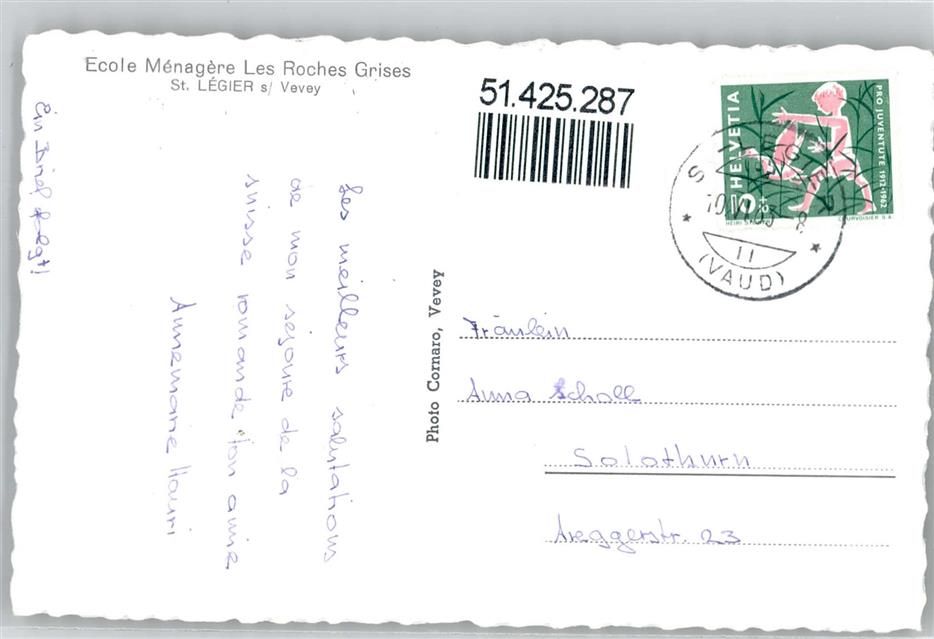 Ecole Ménagère Les Roches Grises
St. LÉGIER s/ Vevey
Ein Brief folgt!
Les meilleurs salutations
de mon séjoure de la
suisse romande ton amie
Annemarie Hauri
Photo Cornaro, Vevey
51.425.287
HELVETIA
PRO JUVENTUTE 1912-1962
10
COURVOISIER S.A.
11
(VAUD)
Fräulein
Anna Scholl
Solothurn
Areggerstr. 23